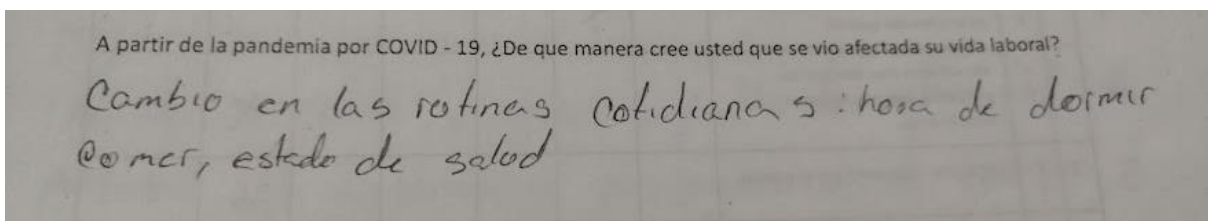 A partir de la pandemia por COVID - 19, ¿De que manera cree usted que se vio afectada su vida laboral?
Cambio en las rotinas cotidianas : hora de dormir
Comer, estado de salud